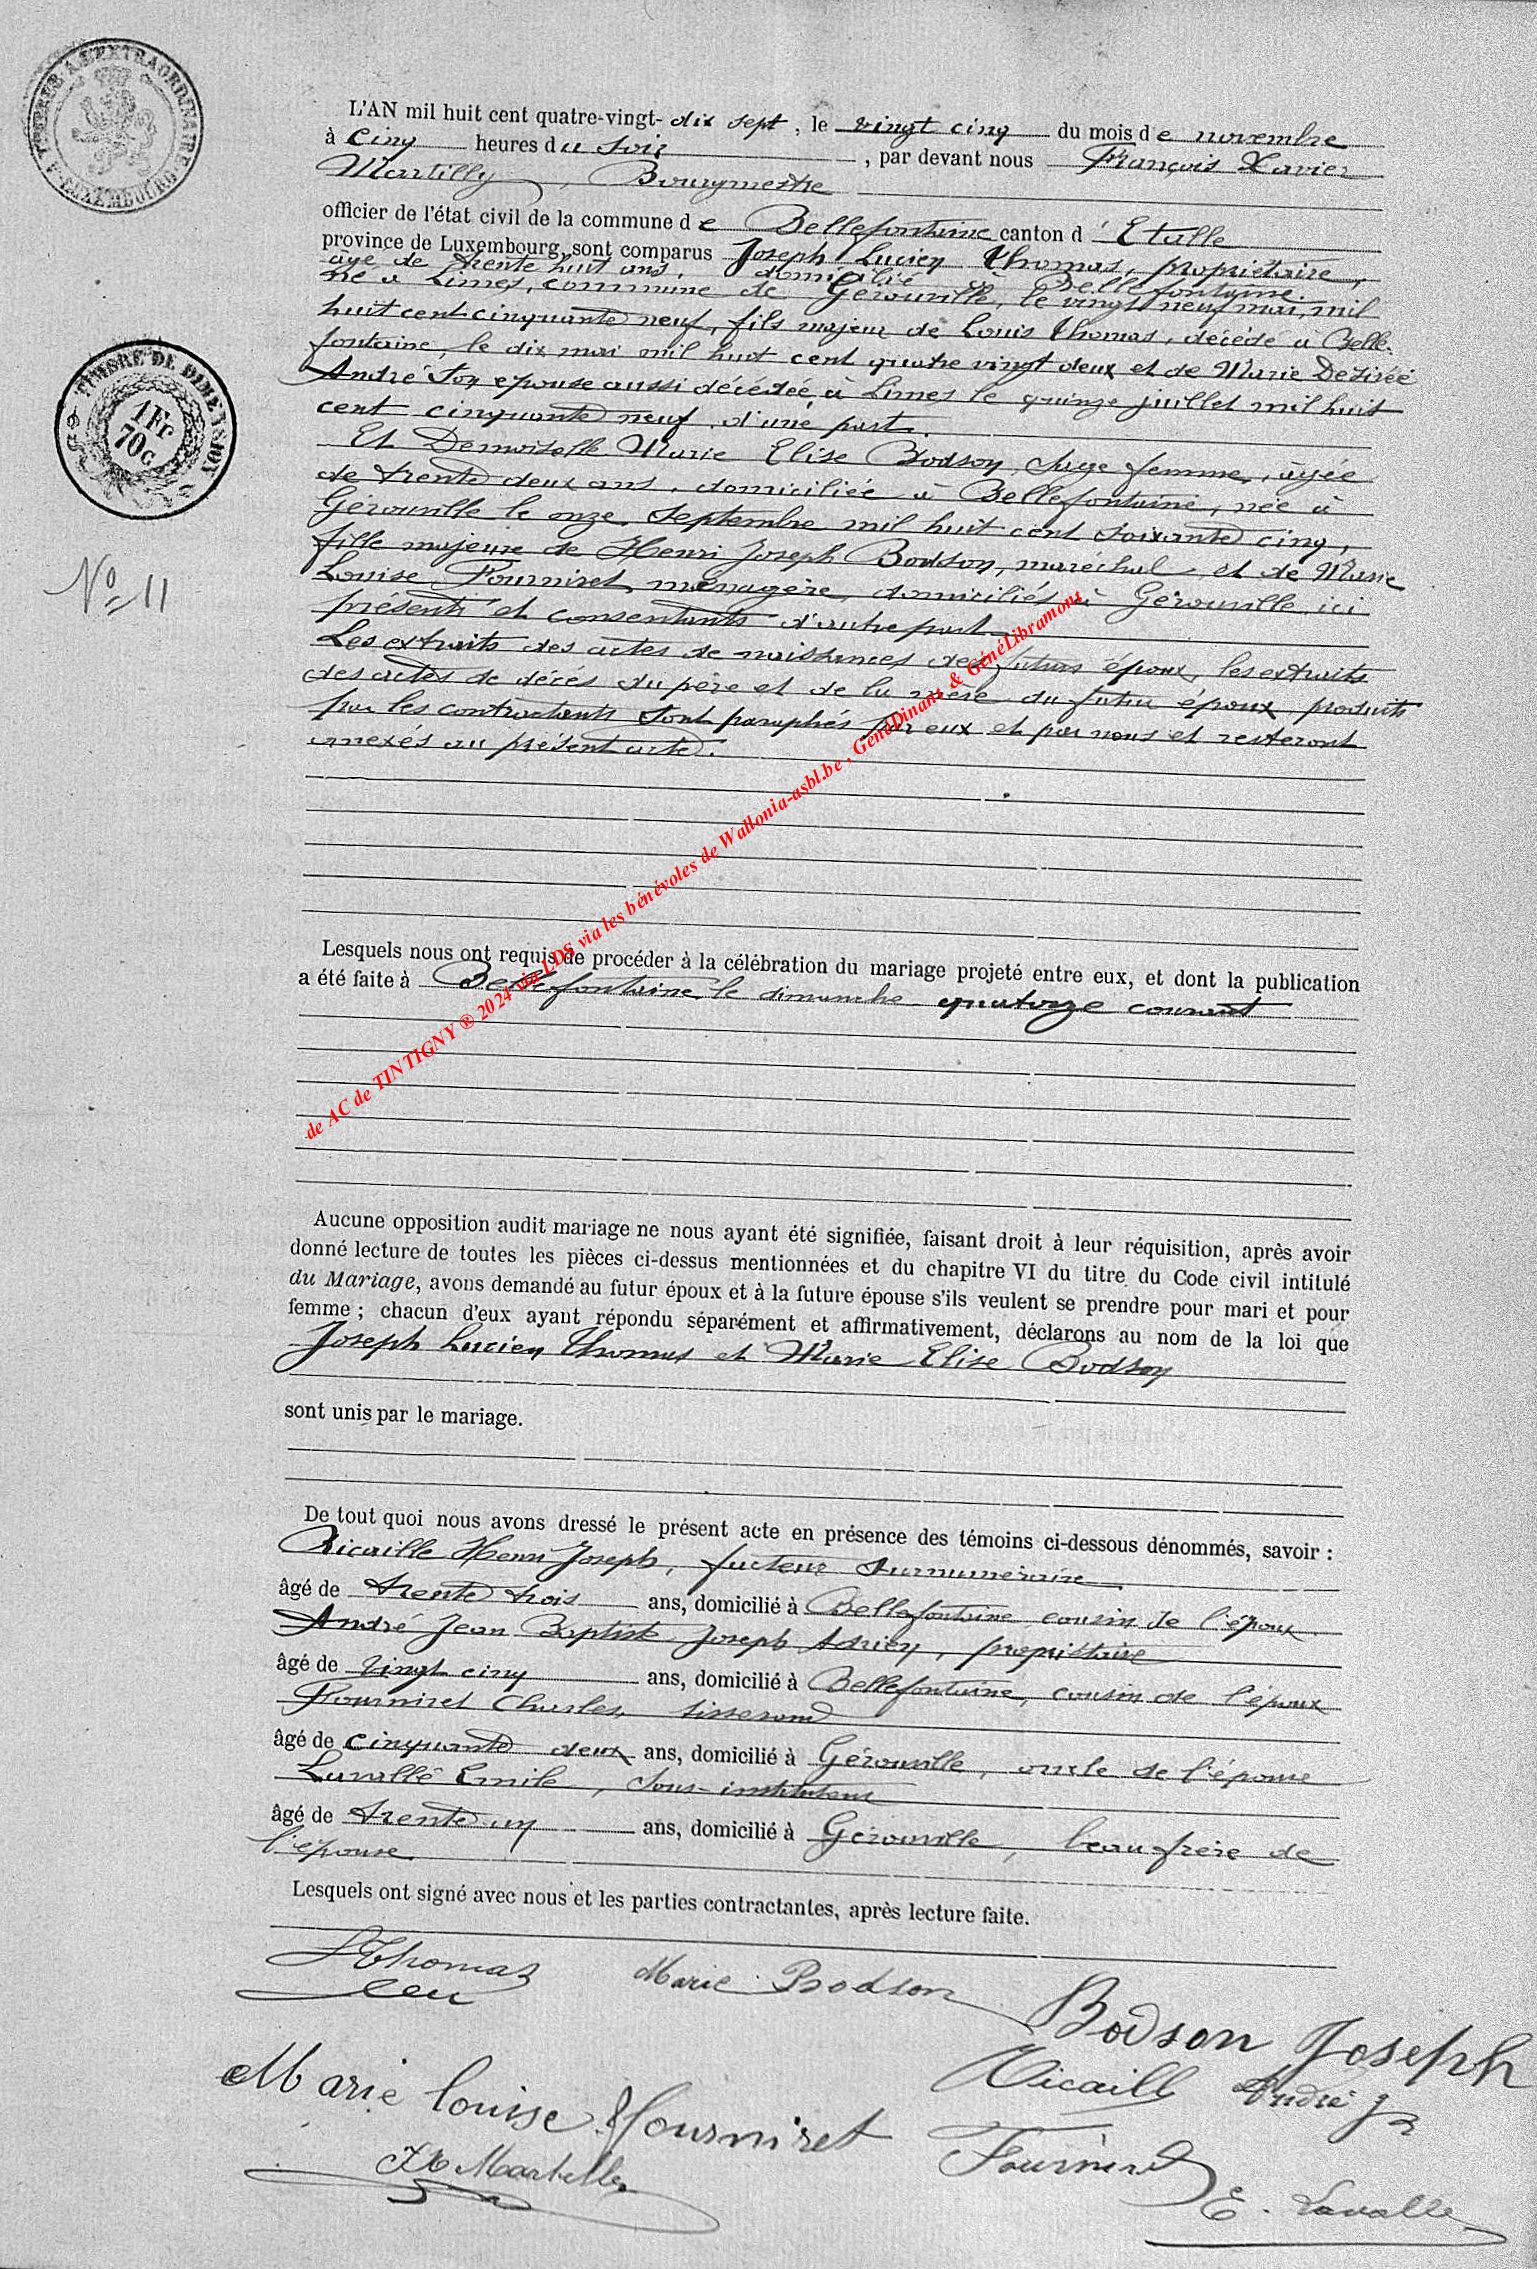 TIMBRE A L'EXTRAORDINAIRE
LUXEMBOURG
L'AN mil huit cent quatre-vingt-dix sept, le vingt cinq du mois de novembre
à cinq heures du soir, par devant nous François Xavier
Martilly, Bourgmestre
officier de l'état civil de la commune de Bellefontaine canton d'Etalle
province de Luxembourg, sont comparus Joseph Lucien Thomas, propriétaire,
agé de trente huit ans, domicilié à Bellefontaine.
né à Limes, commune de Gérouville, le vingt neuf mai, mil
huit cent cinquante neuf, fils majeur de Louis Thomas, décédé à Belle-
fontaine, le dix mai mil huit cent quatre vingt deux et de Marie Desirée
André son epouse aussi décédée, à Limes le quinze juillet mil huit
cent cinquante neuf, d'une part.
TIMBRE DE DIMENSION
1Fr
70c
Et Demoiselle Marie Elise Bodson, sage femme, âgée
de trente deux ans, domiciliée à Bellefontaine, née à
Gérouville le onze septembre mil huit cent soixante cinq,
fille majeure de Henri Joseph Bodson, maréchal, et de Marie
No 11
Louise Fourniret, ménagère, domiciliés à Gérouville, ici
présents et consentants d'autre part
Les extraits des actes de naissances des futurs époux, les extraits
des actes de décés du père et de la mère du futur époux, produits
par les contractants sont paraphés par eux et par nous et resteront
annexés au présent acte.
Lesquels nous ont requis de procéder à la célébration du mariage projeté entre eux, et dont la publication
a été faite à Bellefontaine, le dimanche quatorze courant
de AC de TINTIGNY ® 2024 via LDS via les bénévoles de Wallonia-asbl.be , GénéDinant & GénéLibramont
Aucune opposition audit mariage ne nous ayant été signifiée, faisant droit à leur réquisition, après avoir
donné lecture de toutes les pièces ci-dessus mentionnées et du chapitre VI du titre du Code civil intitulé
du Mariage, avons demandé au futur époux et à la future épouse s'ils veulent se prendre pour mari et pour
femme ; chacun d'eux ayant répondu séparément et affirmativement, déclarons au nom de la loi que
Joseph Lucien Thomas et Marie Elise Bodson
sont unis par le mariage.
De tout quoi nous avons dressé le présent acte en présence des témoins ci-dessous dénommés, savoir :
Ricaille Henri Joseph, facteur surnuméraire
âgé de trente trois ans, domicilié à Bellefontaine, cousin de l'époux
André Jean Baptiste Joseph Adrien, propriétaire
âgé de vingt cinq ans, domicilié à Bellefontaine, cousin de l'époux
Fourniret Charles, tisserand
âgé de cinquante deux ans, domicilié à Gérouville, oncle de l'épouse
Lavallé Emile, sous-instituteur
âgé de trente un ans, domicilié à Gérouville, beau frère de
l'épouse
Lesquels ont signé avec nous et les parties contractantes, après lecture faite.
Thomas Marie Bodson
Bodson Joseph
Ricaille André J
Marie louise Fourniret
Fourniret
Martilly
E. Lavallé